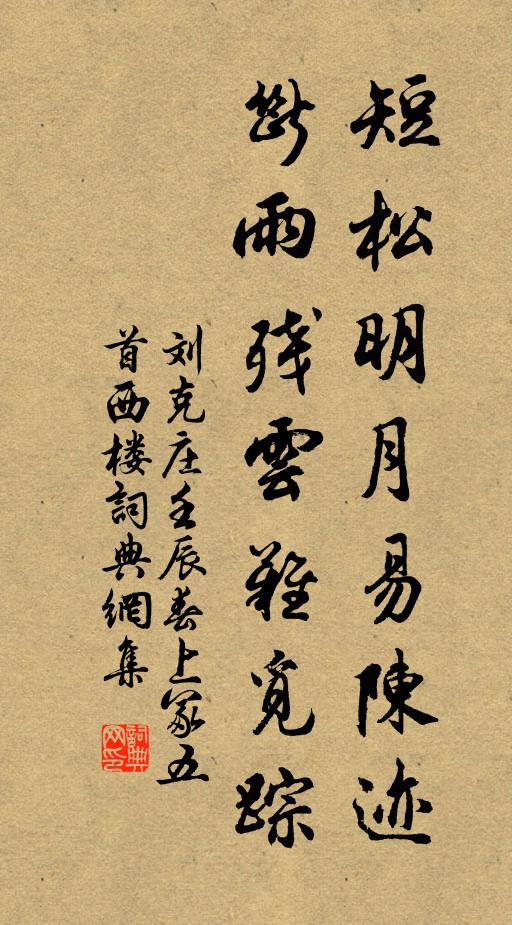 短松明月易陳迹
斷雨残雲難覓踪
刘克庄壬辰春上冢五
首西楼詞典網集
詞典
网印